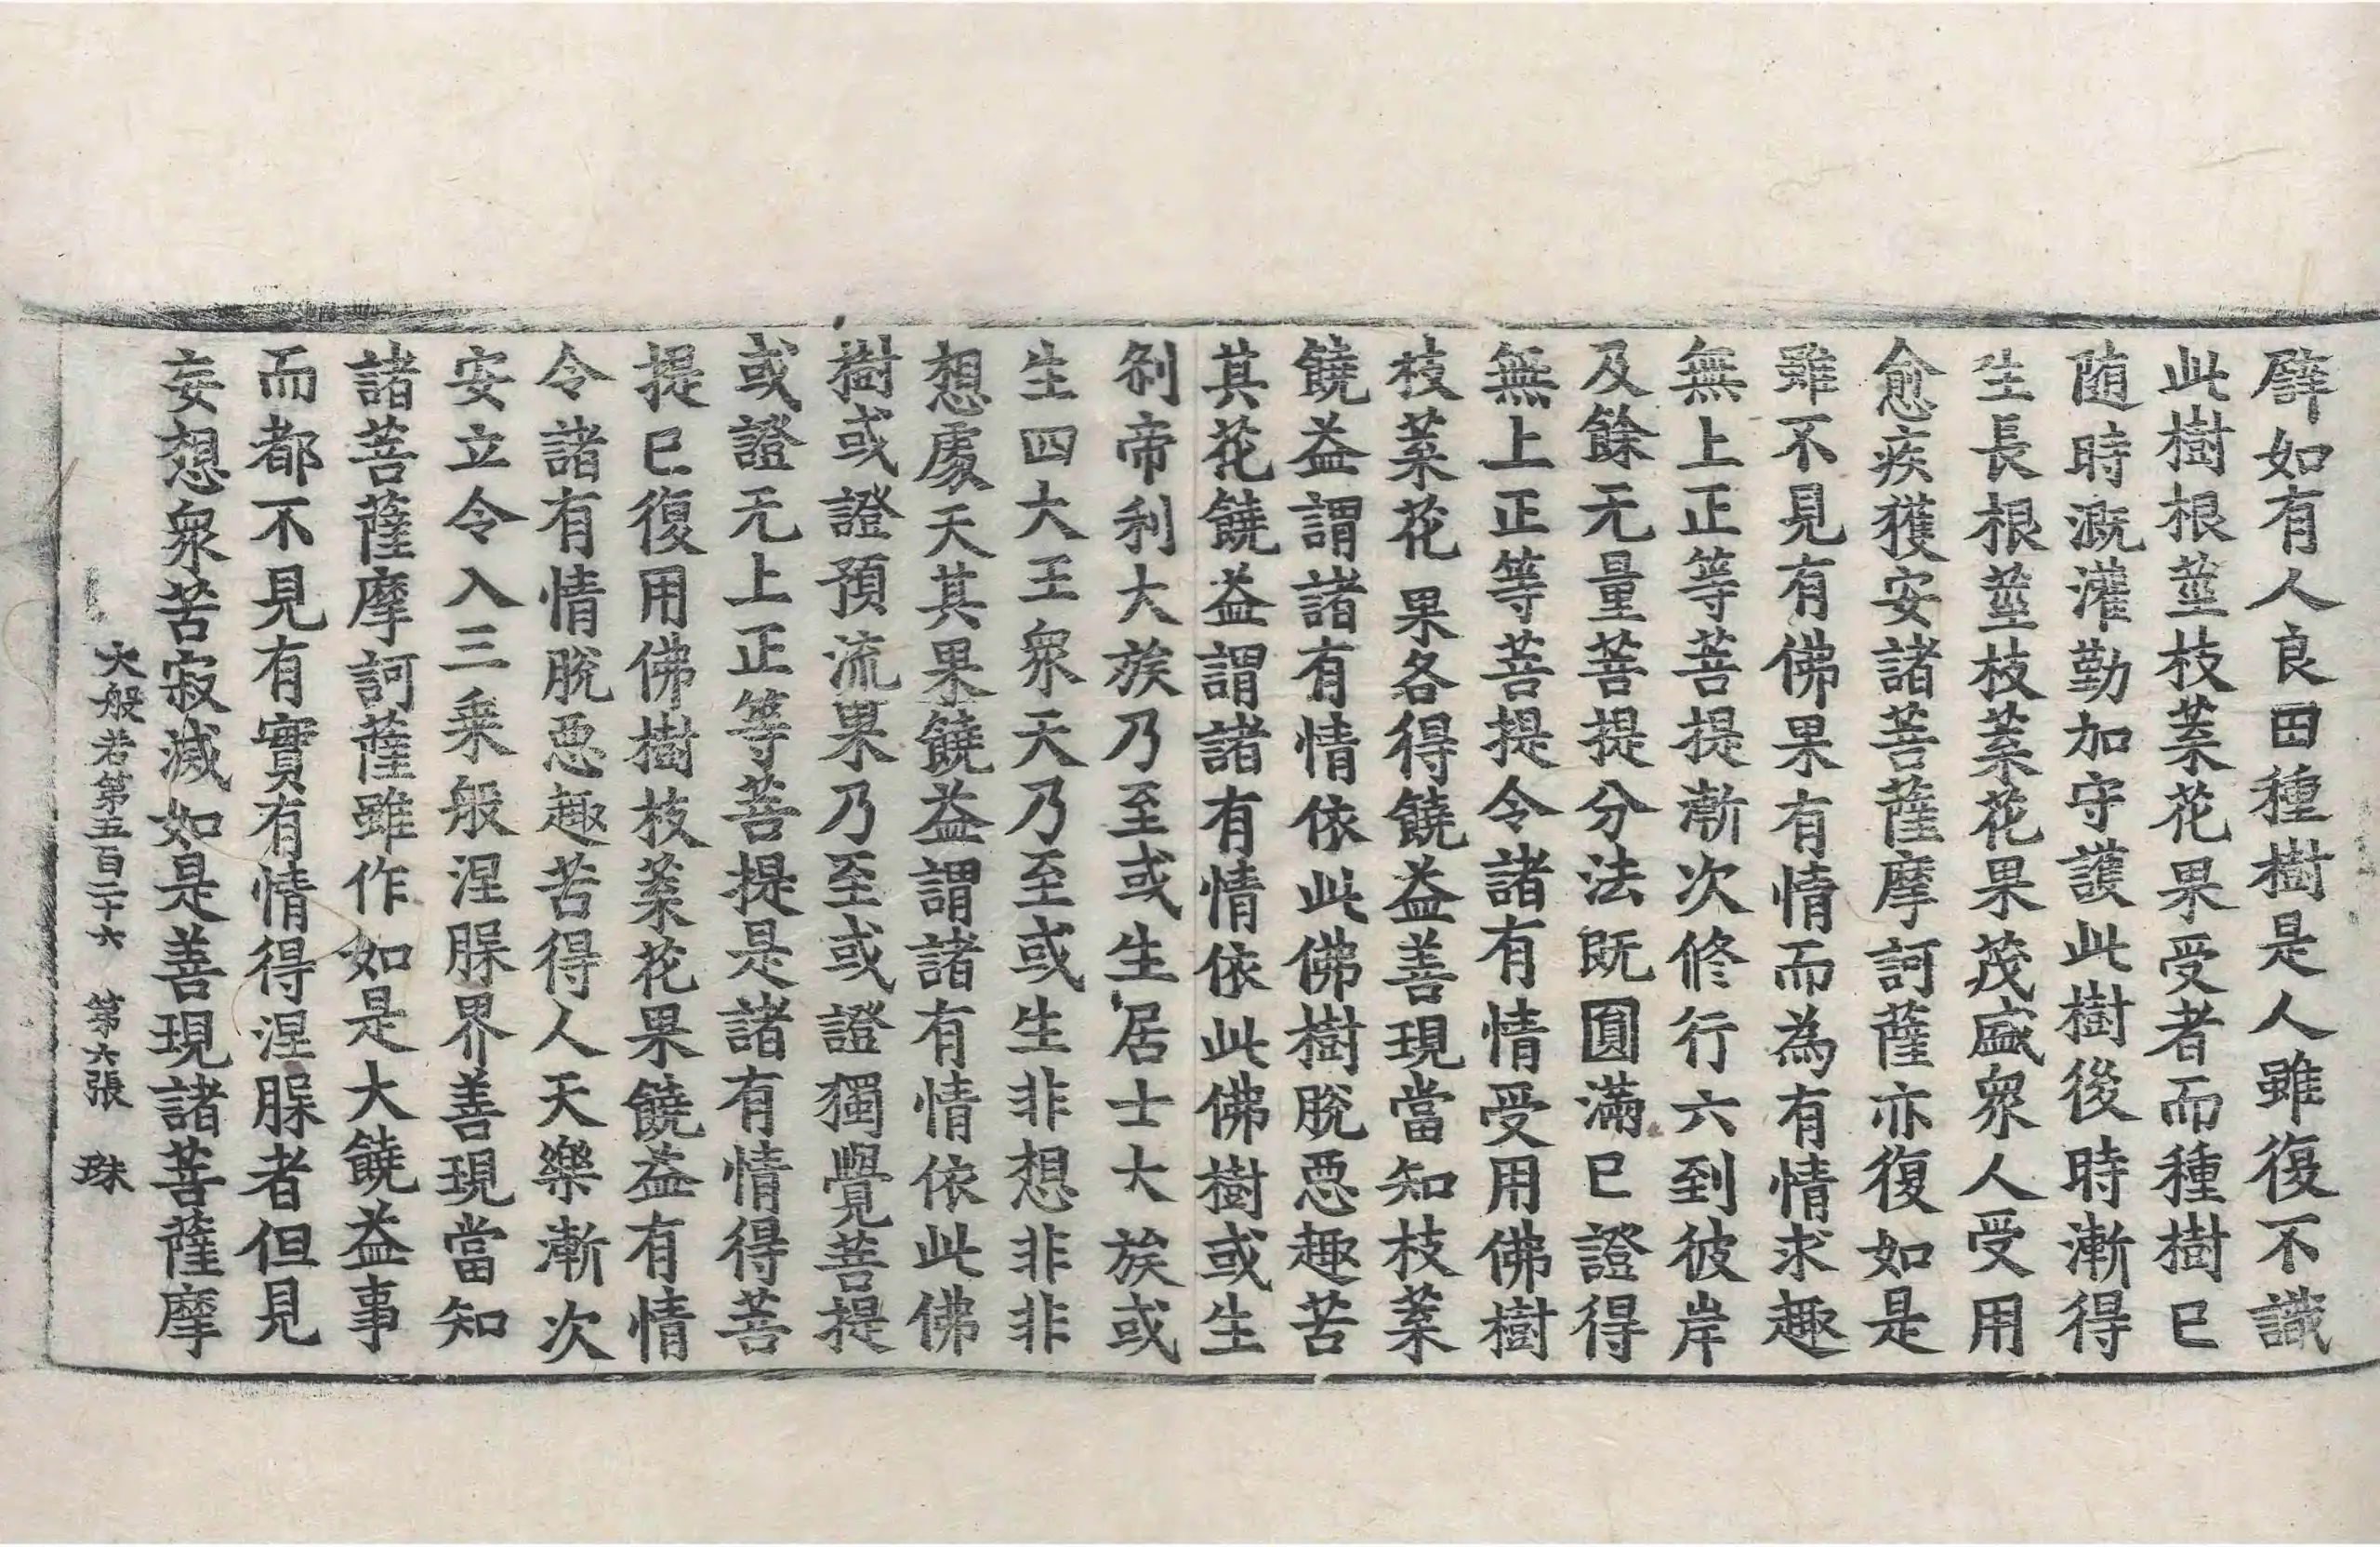 譬如有人良田種樹是人雖復不識
此樹根莖枝葉花果受者而種樹已
随時溉灌勤加守護此樹後時漸得
生長根莖枝葉花果茂盛衆人受用
愈疾獲安諸菩薩摩訶薩亦復如是
雖不見有佛果有情而為有情求趣
無上正等菩提漸次修行六到彼岸
及餘无量菩提分法既圓滿已證得
無上正等菩提令諸有情受用佛樹
枝葉花果各得饒益善現當知枝葉
饒益謂諸有情依此佛樹脫惡趣苦
其花饒益謂諸有情依此佛樹或生
刹帝利大族乃至或生居士大族或
生四大王衆天乃至或生非想非非
想處天其果饒益謂諸有情依此佛
樹或證預流果乃至或證獨覺菩提
或證无上正等菩提是諸有情得菩
提已復用佛樹枝葉花果饒益有情
令諸有情脫惡趣苦得人天樂漸次
安立令入三乘般涅槃界善現當知
諸菩薩摩訶薩雖作如是大饒益事
而都不見有實有情得涅槃者但見
妄想衆苦寂滅如是善現諸菩薩摩
大般若第五百二十六 第六張 珠